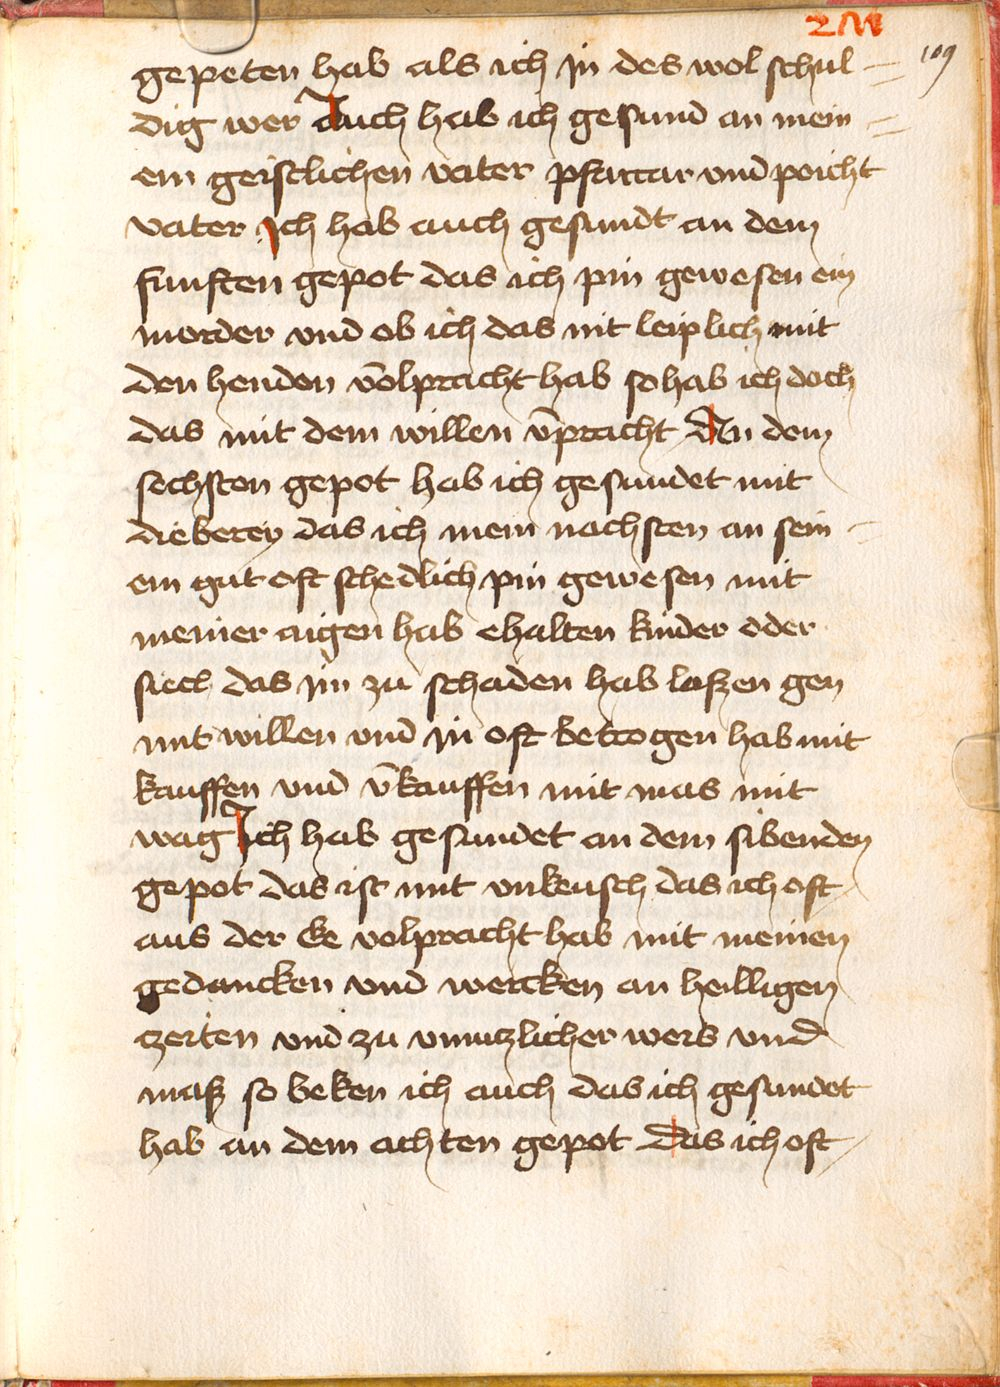 109
gepeten hab als ich jn des wol schul=
dig wer Auch hab ich gesund an mein=
em geistlichen vater pfarrar vnd peicht
vater Ich hab auch gesundt an dem
funften gepot das ich pin gewesen ein
morder vnd ob ich das nit leiplich mit
den henden v̄olpracht hab so hab ich doch
das mit dem willen v̄pracht An dem
sechsten gepot hab ich gesundet mit
dieberey das ich mein nachsten an sein-
em gut oft schedlich pin gewesen mit
meiner aigen hab ehalten kinder oder
siech das jm zu schaden hab laßen gen
mit willen vnd jn oft betrogen hab mit
kauffen vnd v̄kauffen mit mas mit
wag Ich hab gesundet an dem sibenden
gepot das ist mit vnkeusch das ich oft
aus der Ee volpracht hab mit meinen
gedancken vnd wercken an heilligen
czeiten vnd zu vnnuczlicher weis vnd
maß so beken ich auch das ich gesundet
hab an dem achten gepot Das ich oft